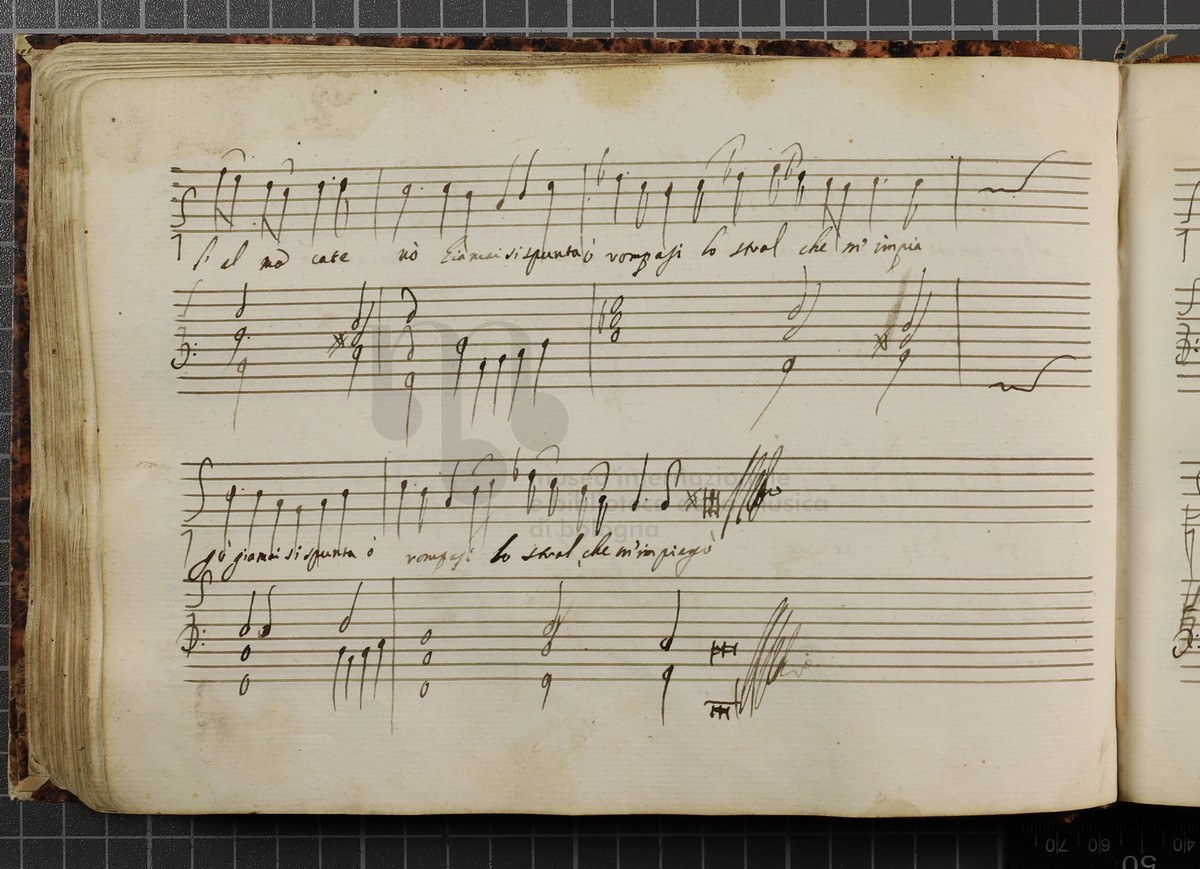 li al mā cate nò giamai si spunta ò rompasi lo stral che m'impia
gò giamai si spunta ò rompasi lo stral che m'impiagò
museo internazionale
e biblioteca della musica
di bologna
70 60 40
50